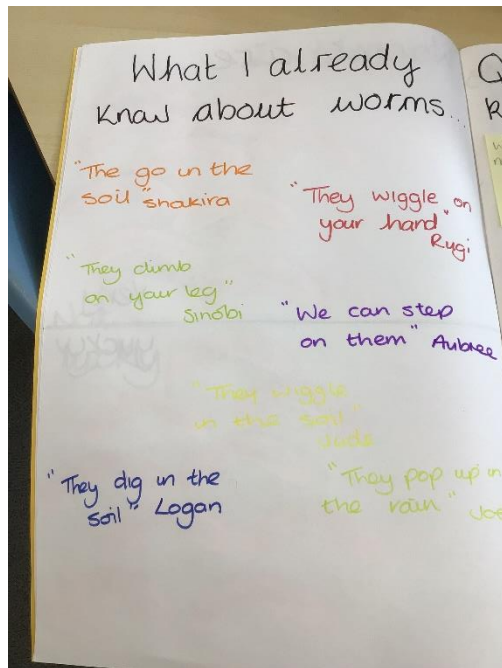 What I already
know about worms...
"The go in the
soil" Shakira
"They wiggle on
your hand"
Rugi
"They climb
on your leg"
Sinobi
"We can step
on them" Aubree
"They wiggle
in the soil"
Jude
"They dig in the
soil" Logan
"They pop up in
the rain"